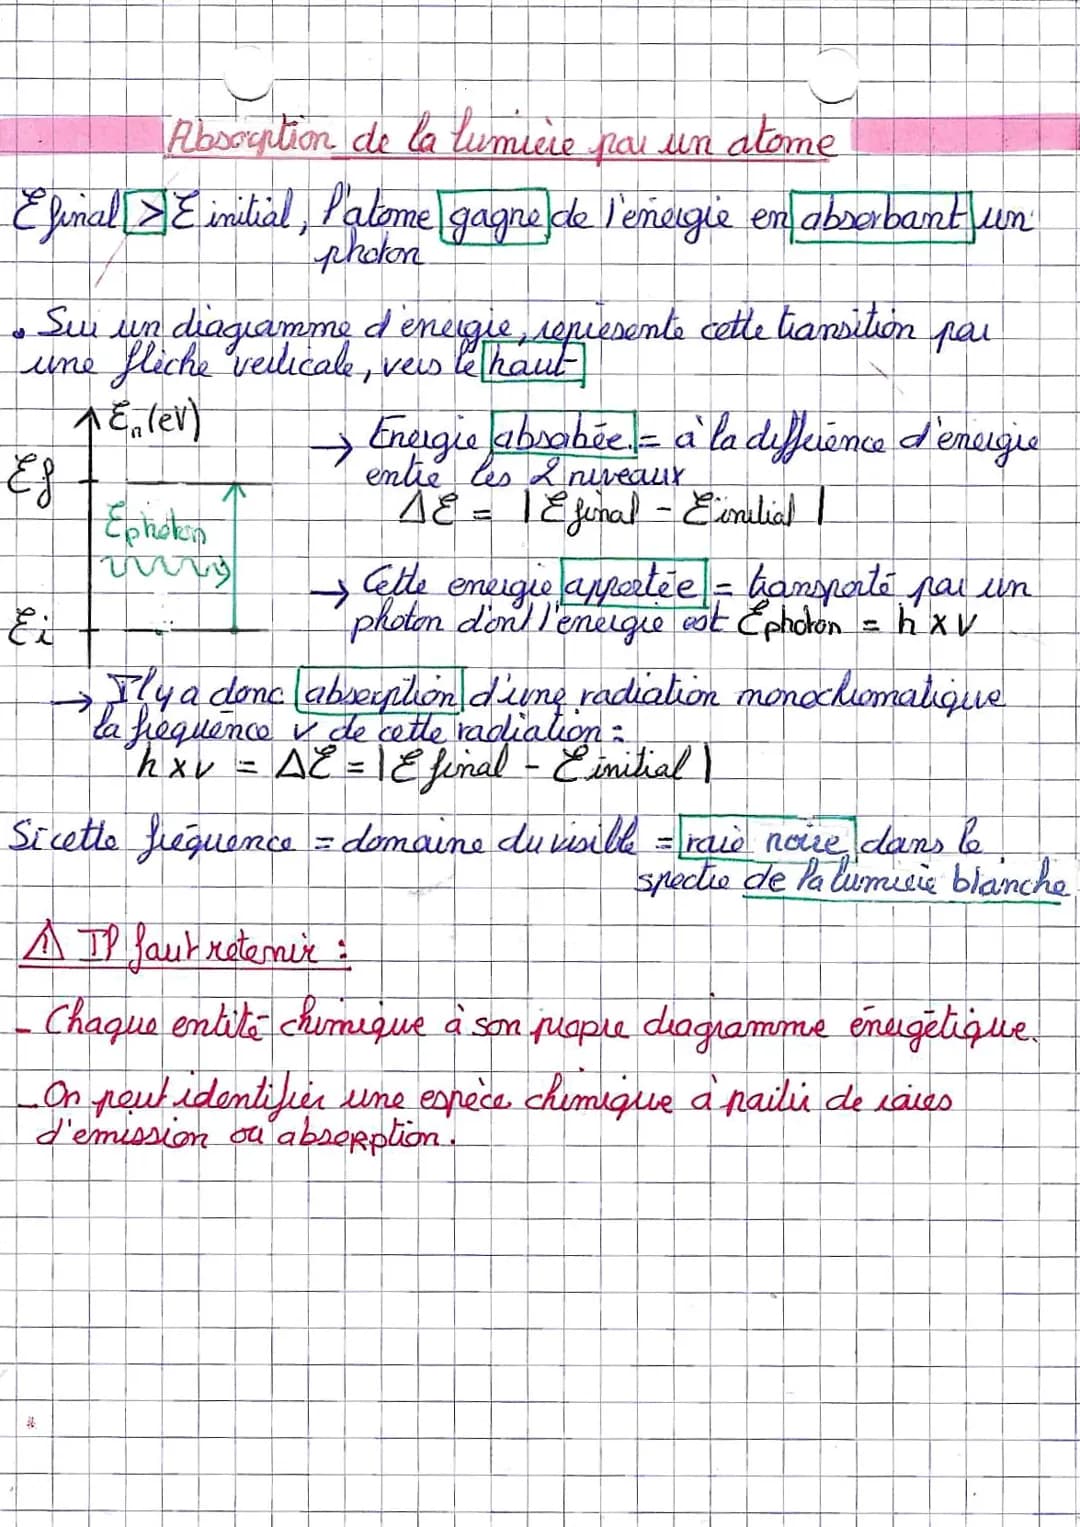 Absorption de la lumière par un atome
Efinal > E initial, l'atome gagne de l'énergie en absorbant un
photon
• Sur un diagramme d'énergie, représente cette transition par
une flèche verticale, vers le haut
En (eV)
→ Energie absorbée = à la difference d'énergie
entre les 2 niveaux
Ef
ΔE = | E final - E initial |
Ephoton
→ Cette energie apportée = transporté par un
photon dont l'énergie est Ephoton = h x ν
Ei
→ Il y a donc absorption d'une radiation monochromatique
la fréquence ν de cette radiation :
h x ν = ΔE = | E final - E initial |
Si cette fréquence = domaine du visible = raie noire dans le
spectre de la lumière blanche
⚠ Il faut retenir :
- Chaque entité chimique à son propre diagramme énergétique.
- On peut identifier une espèce chimique à partir de raies
d'émission ou absorption.